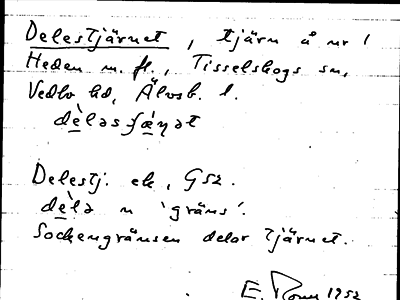 Delestjärnet, tjärn å nr 1
Heden m. fl., Tisselskogs sn,
Vedbo hd, Älvsb. l.
Delestj. ek, G52.
n 'gräns'.
Sockengränsen delar tjärnet.
E. 1952